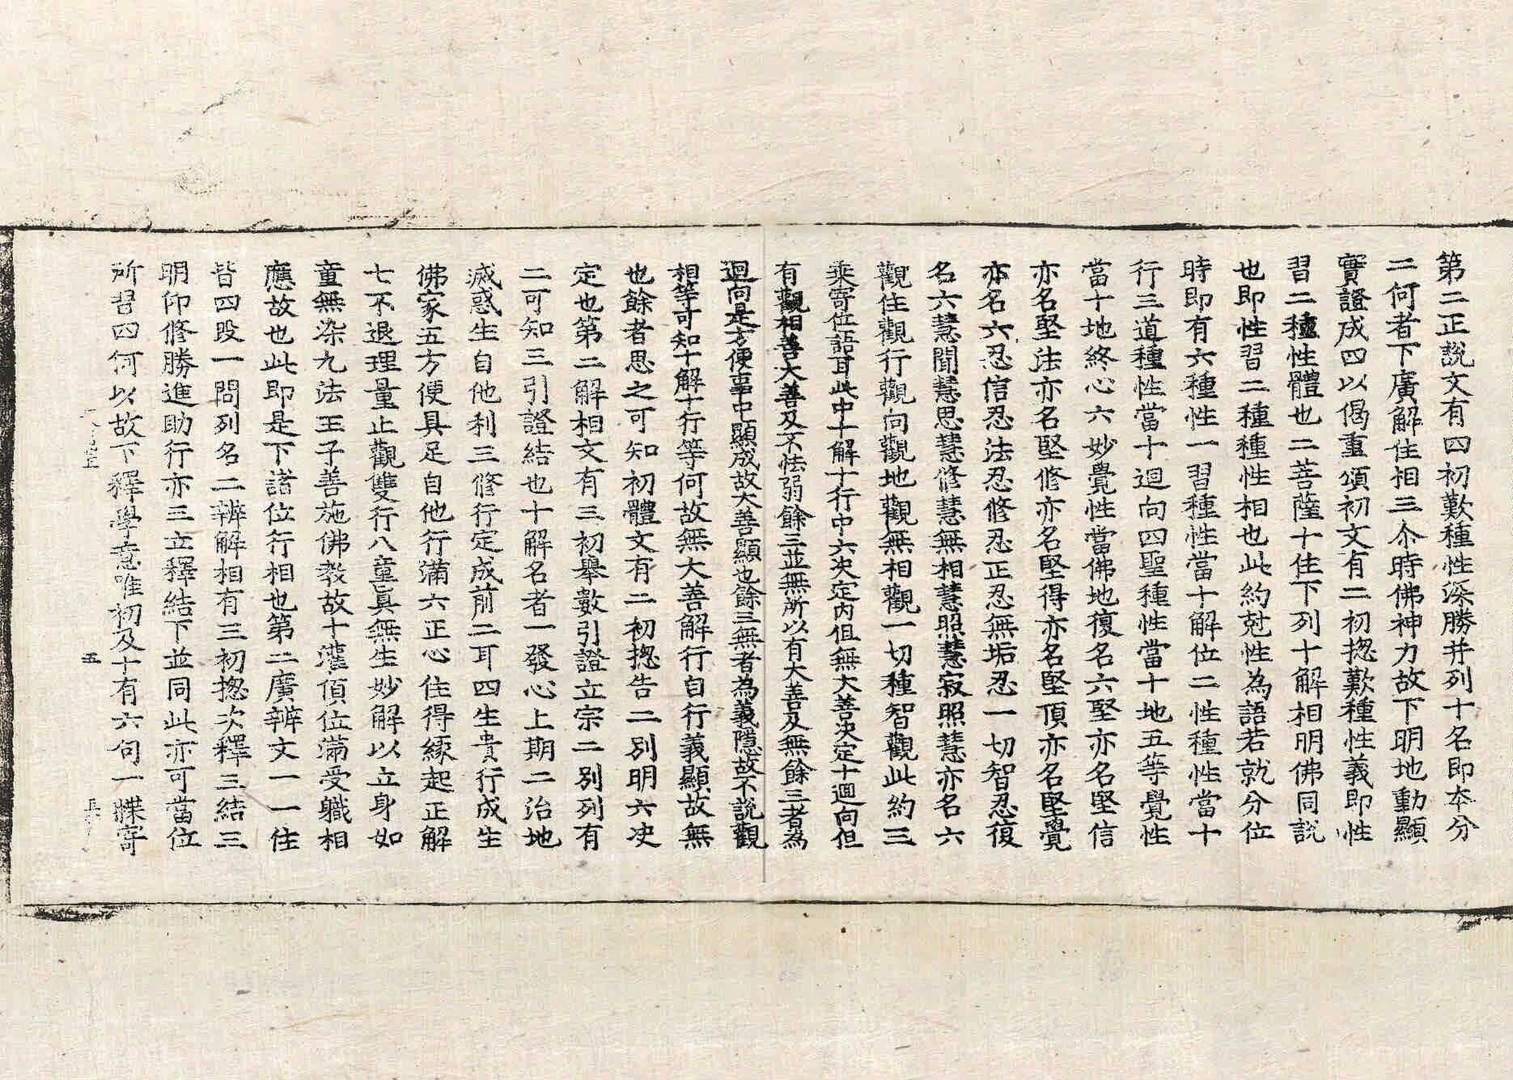 第二正說文有四初歎種性深勝并列十名即夲分
二何者下廣解住相三尒時佛神力故下明地動顯
實證成四以偈重頌初文有二初揔歎種性義即性
習二種性體也二菩薩十住下列十解相明佛同說
也即性習二種種性相也此約尅性為語若就分位
時即有六種性一習種性當十解位二性種性當十
行三道種性當十迴向四聖種性當十地五等覺性
當十地終心六妙覺性當佛地復名六堅亦名堅信
亦名堅法亦名堅修亦名堅得亦名堅頂亦名堅覺
亦名六忍信忍法忍修忍正忍無垢忍一切智忍復
名六慧聞慧思慧修慧無相慧照慧寂照慧亦名六
觀住觀行觀向觀地觀無相觀一切種智觀此約三
乘寄位語耳此中十解十行中六决定內但無大善决定十迴向但
有觀相善大善及不怯弱餘三並無所以有大善及無餘三者為
迴向是方便事中顯成故大善顯也餘三無者為義隱故不說觀
相等可知十解十行等何故無大善解行自行義顯故無
也餘者思之可知初體文有二初揔告二別明六决
定也第二解相文有三初舉數引證立宗二別列有
二可知三引證結也十解名者一發心上期二治地
滅惑生自他利三修行定成前二耳四生貴行成生
佛家五方便具足自他行滿六正心住得緣起正解
七不退理量止觀雙行八童真無生妙解以立身如
童無染九法王子善施佛教故十灌頂位滿受職相
應故也此即是下諸位行相也第二廣辨文一一住
皆四段一問列名二辨解相有三初揔次釋三結三
明仰修勝進助行亦三立釋結下並同此亦可當位
所習四何以故下釋學意唯初及十有六句一牒寄
五